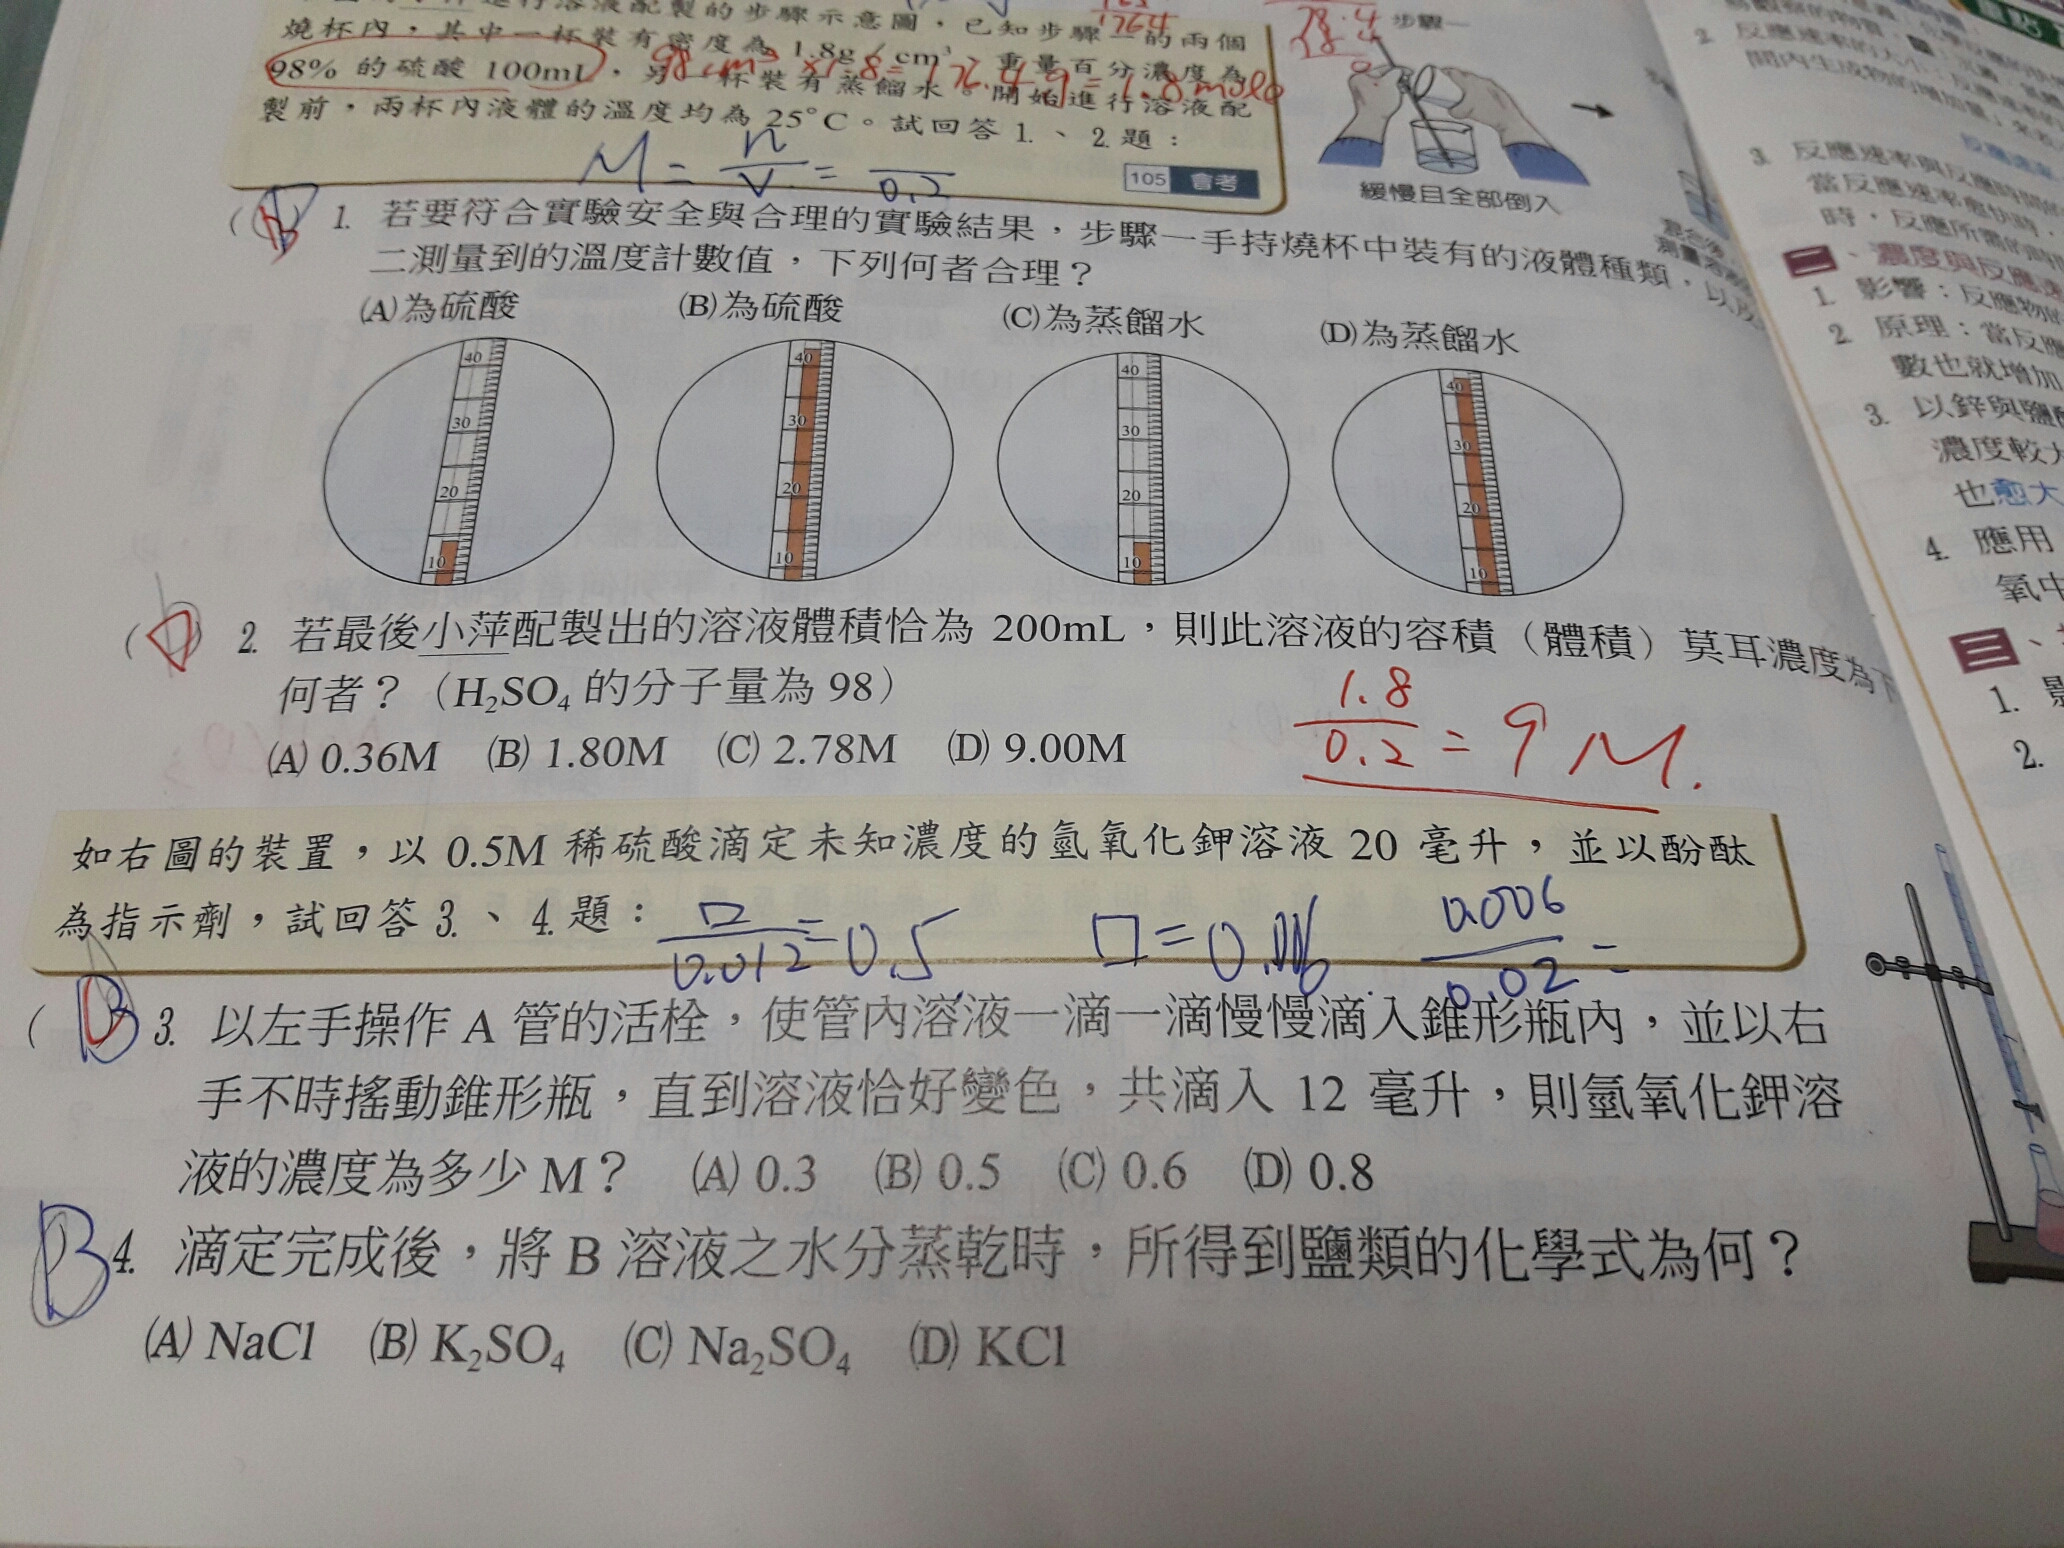 進行溶液配製的步驟示意圖，已知步驟一的兩個
燒杯內，其中一杯裝有密度為 1.8g／cm³、重量百分濃度為
98% 的硫酸 100mL，另一杯裝有蒸餾水。開始進行溶液配
製前，兩杯內液體的溫度均為 25°C。試回答 1. 、 2. 題：
105 會考
98 cm³ ×1.8=
= 1.8 mole
M = n/V = /0.2
28.4
步驟一
緩慢且全部倒入
( B 1. 若要符合實驗安全與合理的實驗結果，步驟一手持燒杯中裝有的液體種類，以及
二測量到的溫度計數值，下列何者合理？
(A)為硫酸 (B)為硫酸 (C)為蒸餾水 (D)為蒸餾水
40 40 40 40
30 30 30 30
20 20 20 20
10 10 10 10
( D ) 2. 若最後小萍配製出的溶液體積恰為 200mL，則此溶液的容積（體積）莫耳濃度為下
何者？（H₂SO₄ 的分子量為 98）
(A) 0.36M (B) 1.80M (C) 2.78M (D) 9.00M
1.8/0.2 = 9 M.
如右圖的裝置，以 0.5M 稀硫酸滴定未知濃度的氫氧化鉀溶液 20 毫升，並以酚酞
為指示劑，試回答 3. 、 4. 題：
□/0.012 = 0.5
0.006/0.02 =
( B 3. 以左手操作 A 管的活栓，使管內溶液一滴一滴慢慢滴入錐形瓶內，並以右
手不時搖動錐形瓶，直到溶液恰好變色，共滴入 12 毫升，則氫氧化鉀溶
液的濃度為多少 M？ (A) 0.3 (B) 0.5 (C) 0.6 (D) 0.8
B 4. 滴定完成後，將 B 溶液之水分蒸乾時，所得到鹽類的化學式為何？
(A) NaCl (B) K₂SO₄ (C) Na₂SO₄ (D) KCl
2. 反應速率的大小
間內生成物的增加量
3. 反應速率與反應時間
當反應速率愈快時，
時，反應所需的時間
二、濃度與反應速
1. 影響：反應物
2. 原理：當反應
數也就增加
3. 以鋅與鹽
濃度較大
也愈大
4. 應用
氧中
三、
1. 影
2.